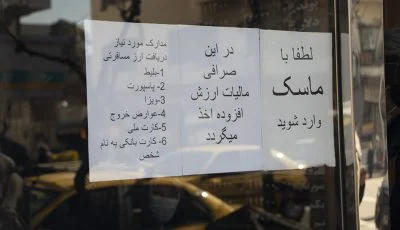 لطفا با
ماسک
وارد شوید
در این
صرافی
مالیات ارزش
افزوده اخذ
میگردد
مدارک مورد نیاز
دریافت ارز مسافرتی
1-بلیط
2- پاسپورت
3-ویزا
4-عوارض خروج
5-کارت ملی
6-کارت بانکی به نام
شخص